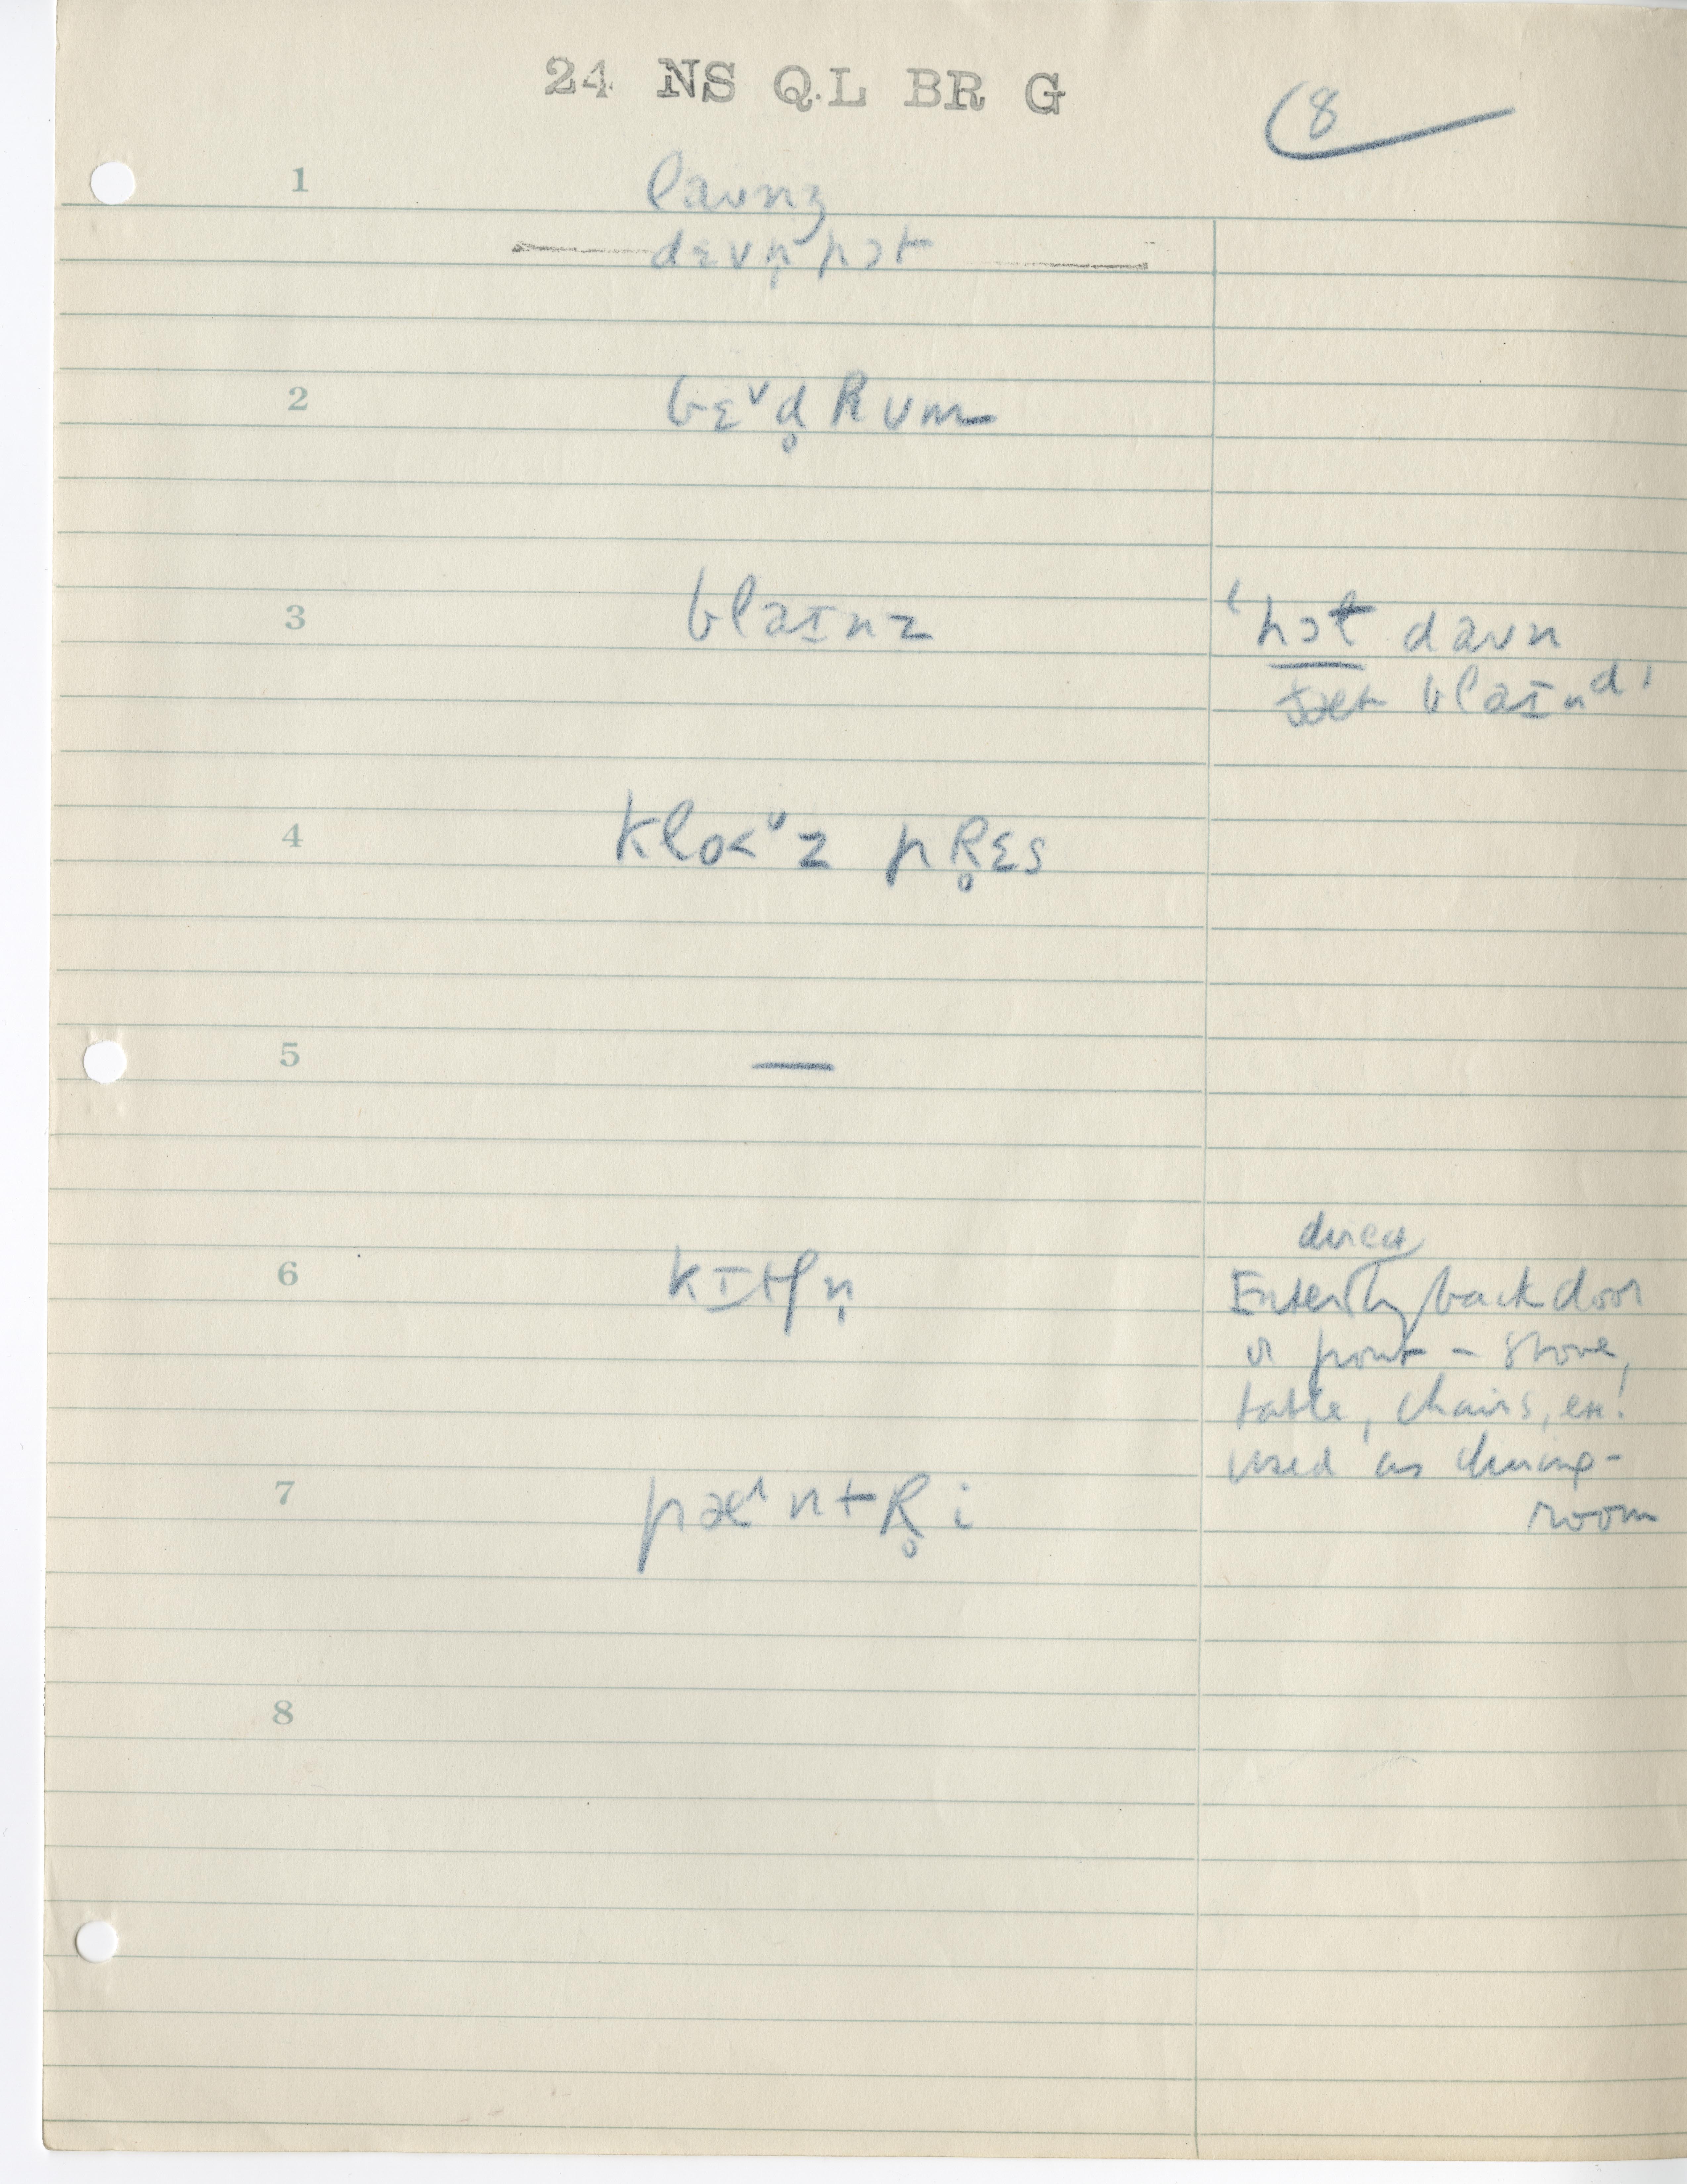 24 NS QL BR G
8
1 laʊnʒ
dɛvn̩pɔt
2 bɛˇd̥ Rʊm
3 blaɪnz
'hɔt daʊn
ðæt blaɪnᵈ'
4 kloˇz pR̥ɛs
5 —
6 kɪtʃn̩
direct
Enter by back door
or front – stove,
table, chairs, etc.
used as dining-
room
7 pæ^ntR̥i
8